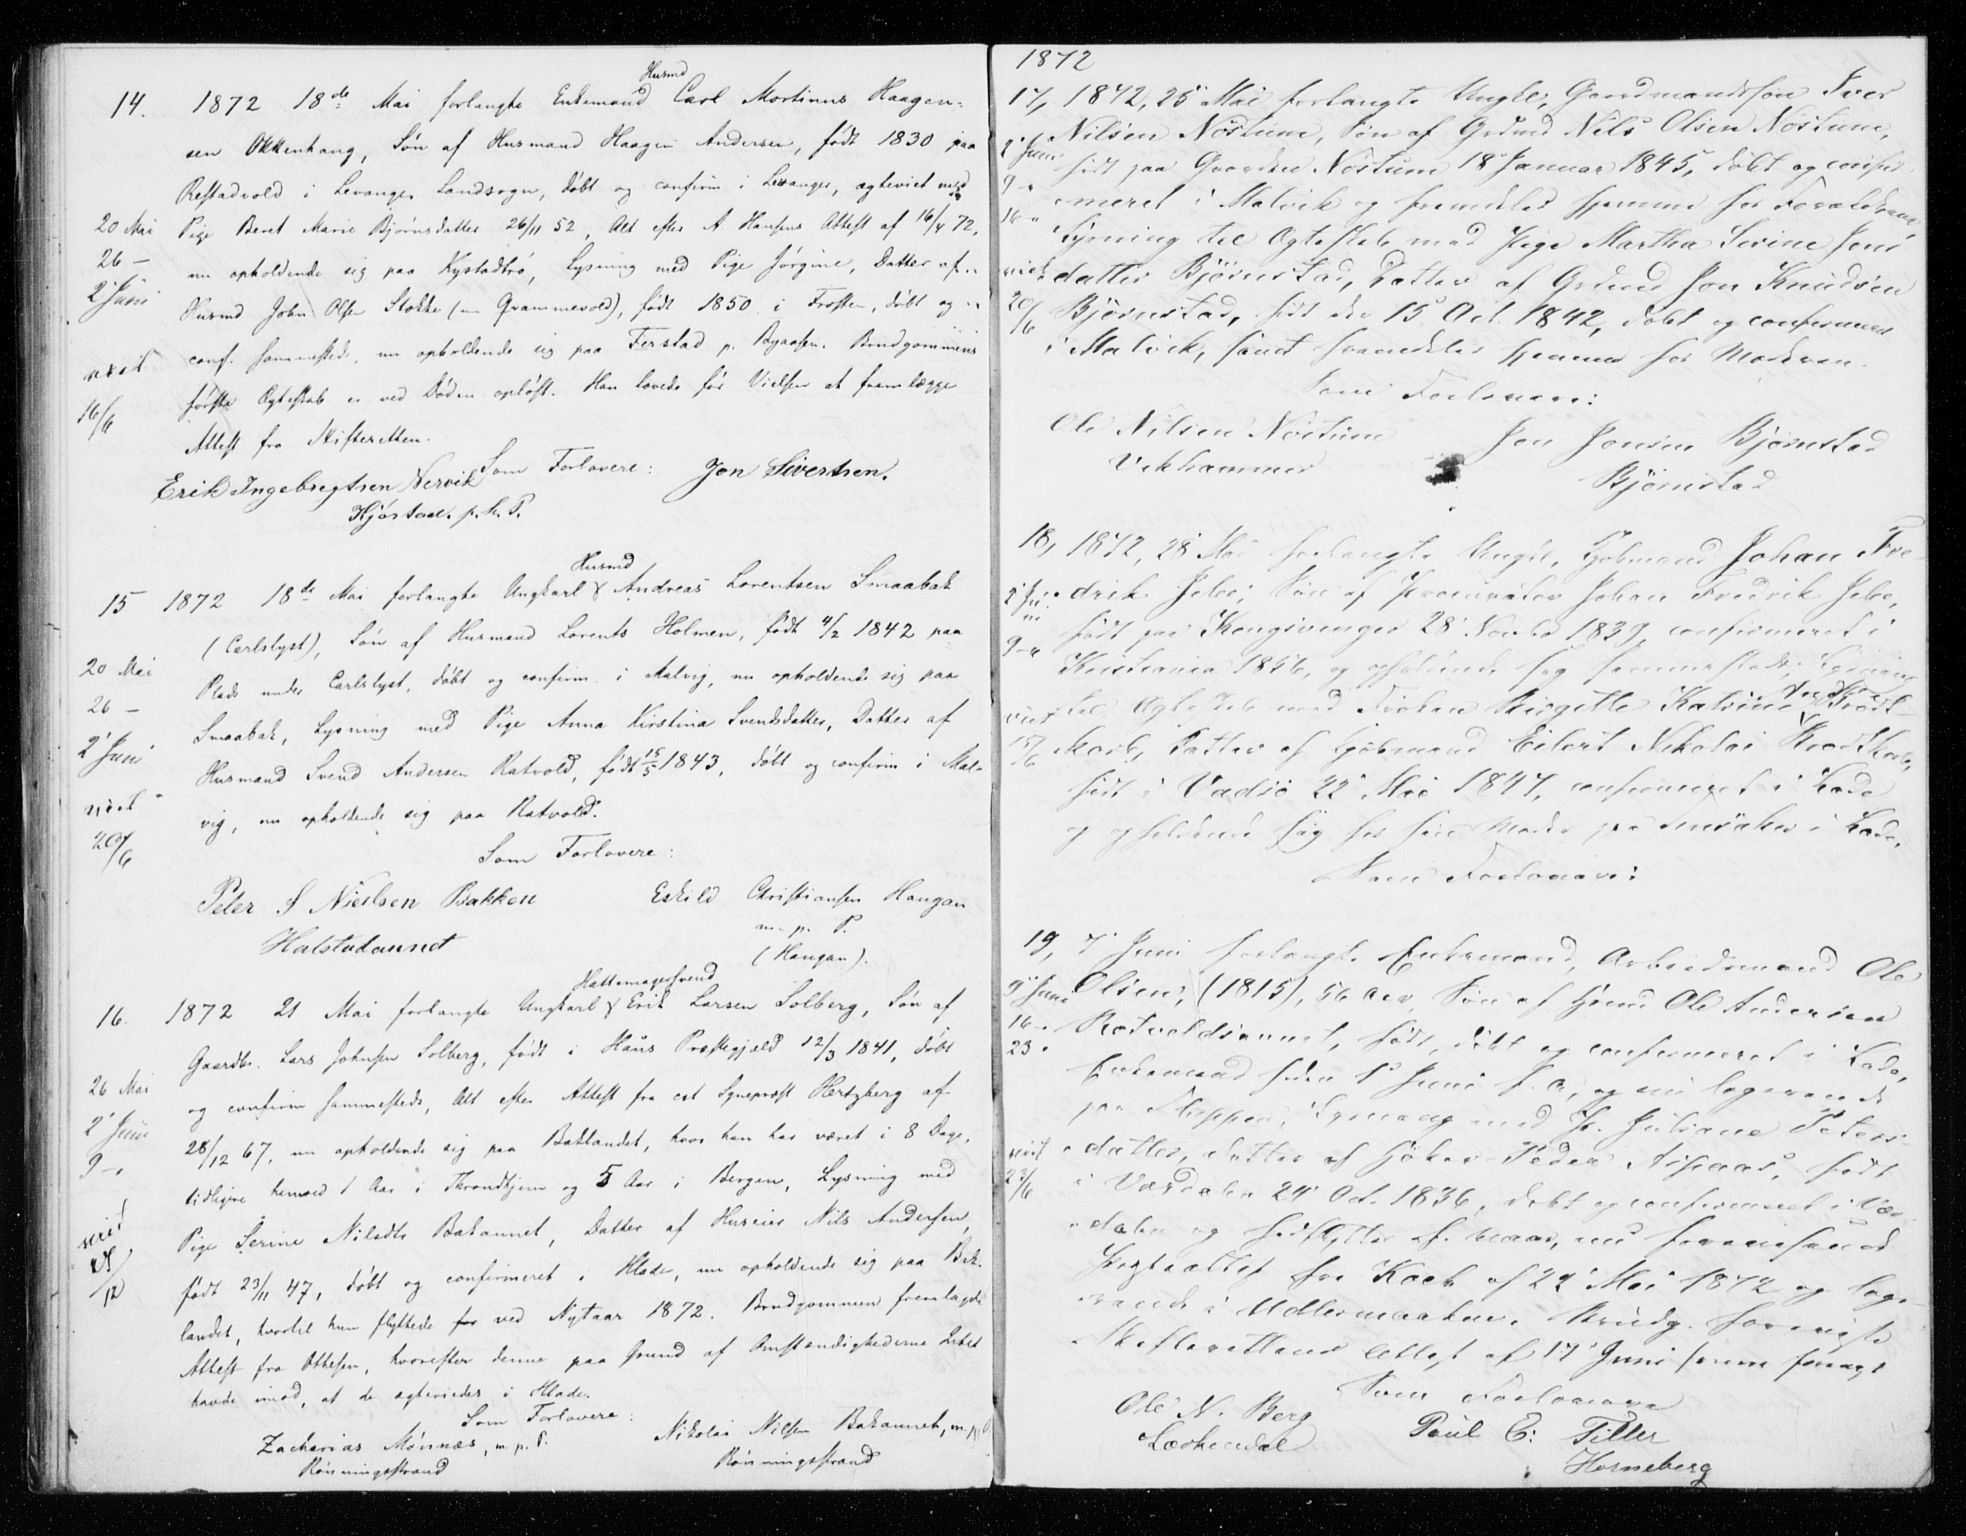 14.
1872 18de Mai forlangte Enkemand Husmd Carl Mortinus Haagen-
sen Okkenhaug, Søn af Husmand Haagen Andersen, født 1830 paa
Restadvold i Levanger Landsogn, døbt og confirm i Levanger, ægteviet med
20 Mai Pige Beret Marie Bjørnsdatter 26/11 52, Alt efter A Hansens Attest af 16/4 72,
26 — nu opholdende sig paa Kystadtrø, Lysning med Pige Jørgine, Datter af
2' Juni Husmd John Olsen Stokke (nu Grammevold), født 1850 i Frosten, døbt og
conf. sammesteds, nu opholdende sig paa Ferstad p. Byaasen. Brudgommens
viet første Ægteskab er ved Døden opløst. Han lovede før Vielsen at fremlægge
16/6 Attest fra Skifteretten.
Som Forlovere:
Erik Ingebregtsen Nervik Jon Sivertsen.
Hjørstad. p. h. P.
15 1872 18de Mai forlangte Ungkarl Husmd Andreas Lorentsen Smaabak
(Carlslyst), Søn af Husmand Lorents Holmen, født 4/2 1842 paa
20 Mai Plads under Carlslyst, døbt og confirm. i Malvig, nu opholdende sig paa
26 — Smaabak, Lysning med Pige Anna Kirstina Svendsdatter, Datter af
2' Juni Husmand Svend Andersen Ratvold, født 15/5 1843, døbt og confirm i Mal-
viet vig, nu opholdende sig paa Ratvold.
20/6 Som Forlovere:
Peter S Nielsen Bakken Eskild Christiansen Haugan
m. p. P.
Halstadaunet (Haugan).
16. 1872 21 Mai forlangte Ungkarl Hattemagersvend Erik Larsen Solberg, Søn af
Gaardbr. Lars Johnsen Solberg, født i Haus Præstegjæld 12/3 1841, døbt
26 Mai og confirm sammesteds, Alt efter Attest fra cst Sgnepræst Hertzberg af
2' Juni 28/12 67, nu opholdende sig paa Baklandet, hvor han har været i 8 Dage,
9 — tidligere henved 1 Aar i Throndhjem og 5 Aar i Bergen, Lysning med
viet Pige Serine Nilsdtr Bakaunet, Datter af Huseier Nils Andersen,
født 23/11 47, døbt og confirmeret i Hlade, nu opholdende sig paa Bak-
/12 landet, hvortil hun flyttede ved Nytaar 1872. Brudgommen fremlagde
Attest fra Ottesen, hvorefter denne paa Grund af Omstændighederne Intet
havde imod, at de ægtevies i Hlade.
Som Forlovere:
Zacharias Mønnæs, m. p. P. Nikolai Nilsen Bakaunet, m. p. P
Rønningstrand Rønningstrand
1872
17, 1872, 25' Mai forlangte Ungk., Gaardmandssøn Iver
Nilsen Nøstum, Søn af Grdmd Nils Olsen Nøstum,
2' Juni født paa Gaarden Nøstum 18' Januar 1845, døbt og confir
9 - " meret i Malvik og fremdeles hjemme hos Forældrene
16 - " Lysning til Ægteskab med Pige Martha Serine Jons
viet datter Bjørnstad, Datter af Grdmd Jon Knudsen
20/6 Bjørnstad, født den 15' Oct. 1842, døbt og confirmeret
i Malvik, samt fremdeles hjemme hos Moderen.
Som Forlovere:
Ole Nilsen Nøstum Jon Jonsen Bjørnstad
Vikhammer Bjørnstad
18, 1872, 28' Mai forlangte Ungk., Kjøbmand Johan Fre-
2' Ju- drik Jelbe, Søn af Procurator Johan Fredrik Jelbe,
ni født paa Kongsvinger 28' Novbr 1839, confirmeret i
9 - " Kristiania 1856, og opholdende sig sammesteds, Lysning
viet til Ægteskab med Frøken Birgitte Katrine Brodt-
15/6 korb, Datter af Kjøbmand Eilert Nikolai Brodtkorb,
født i Vadsø 22' Mai 1847, confirmeret i Lade
og opholdende sig hos sin Moder paa i Lade.
Som Forlovere:
19, 7' Juni forlangte Enkemand, Arbeidsmand Ole
9' Juni Olsen, (1815), 56 Aar, Søn af Hsmd Ole Andersen
16 - " Ratvoldsaunet, født, døbt og confirmeret i Lade,
23 " Enkemand siden 1' Juni f. A., og nu logerende
paa Steppen, Lysning med P. Juliane Peters-
viet datter, Datter af Peder Aspaas, født
23/6 i Værdalen 24' Oct. 1836, døbt og confirmeret i Vær
dalen og
fra Koch af 22' Mai 1872 og loge-
rende i Brudg. foreviste
Skifterettens Attest af 17' Juni
Som Forlovere
Ole N. Berg Paul E. Tiller
Lærkendal Horneberg